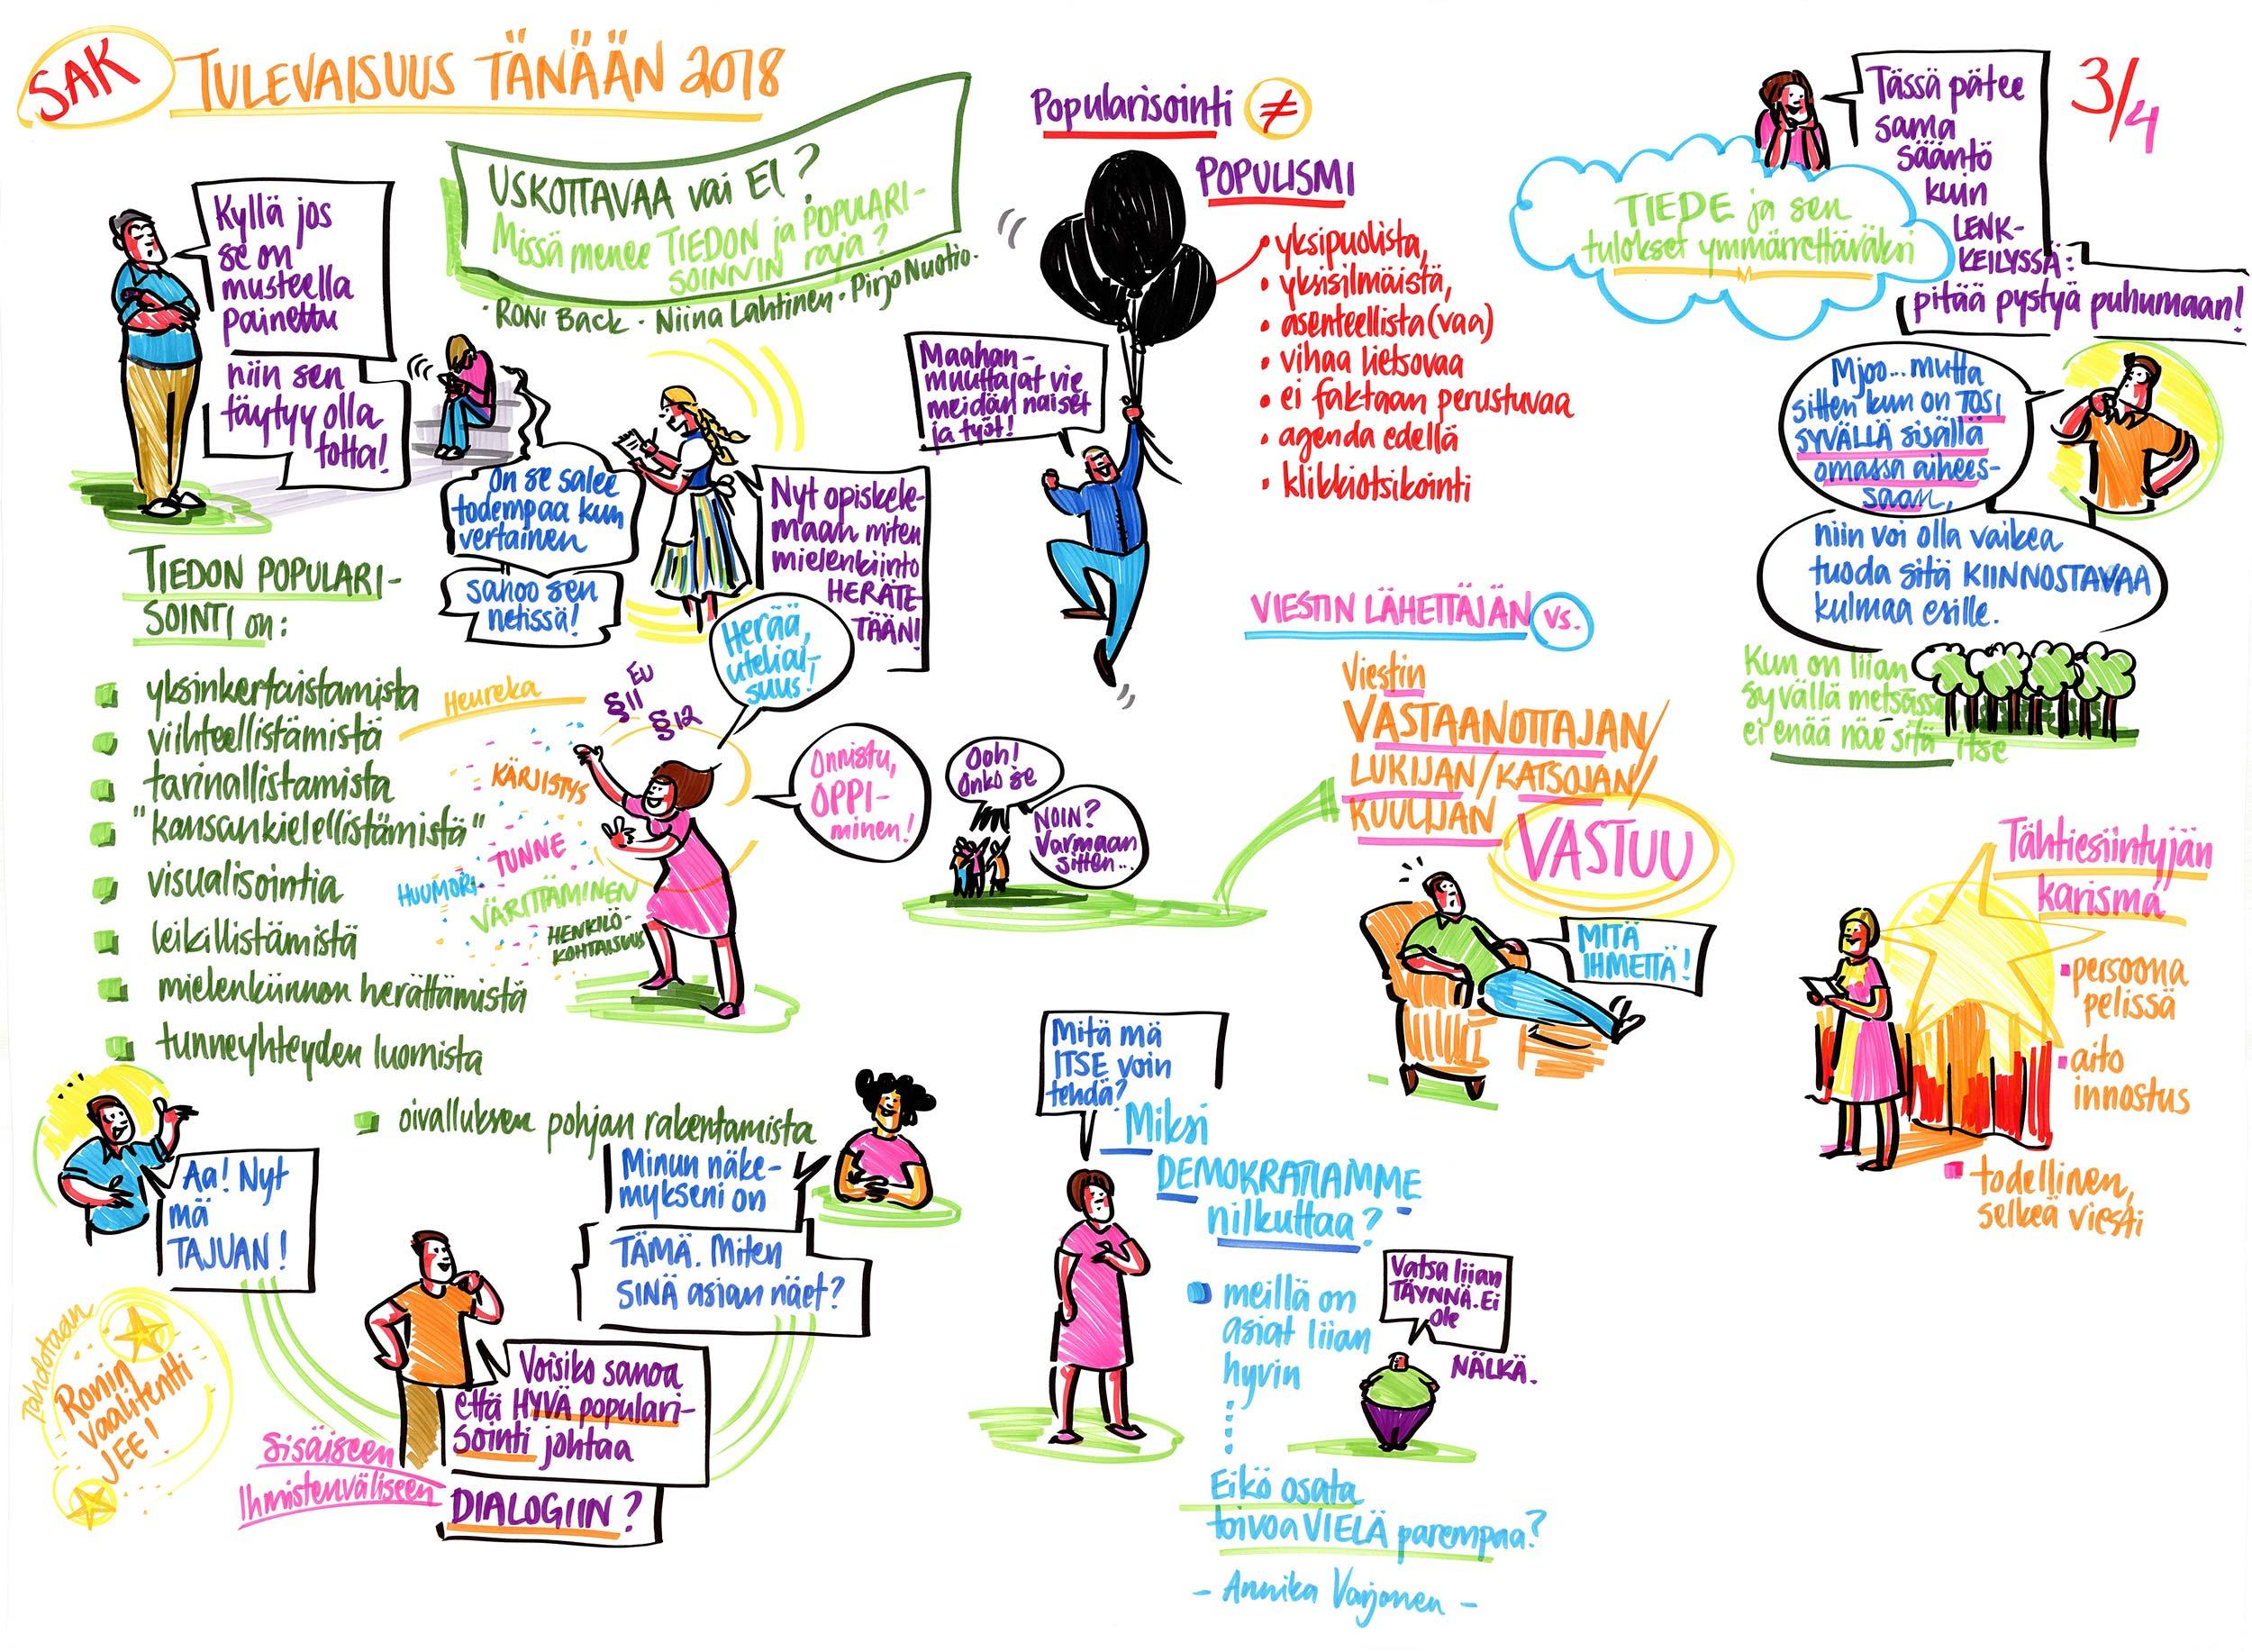 SAK
TULEVAISUUS TÄNÄÄN 2018
3/4
USKOTTAVAA vai EI?
Missä menee TIEDON ja POPULARI-
SOINNIN raja?
· RONI Back · Niina Lahtinen · Pirjo Nuotio ·
Kyllä jos
se on
musteella
painettu
niin sen
täytyy olla
totta!
On se salee
todempaa kun
vertainen
sanoo sen
netissä!
Nyt opiskele-
maan miten
mielenkiinto
HERÄTE-
TÄÄN!
TIEDON POPULARI-
SOINTI on:
yksinkertaistamista
viihteellistämistä
tarinallistamista
"kansankielellistämistä"
visualisointia
leikillistämistä
mielenkiinnon herättämistä
tunneyhteyden luomista
oivalluksen pohjan rakentamista
Heureka
EU
§11
§12
KÄRJISTYS
TUNNE
HUUMORI
VÄRITTÄMINEN
HENKILÖ-
KOHTAISUUS
Herää,
uteliai-
suus!
Onnistu,
OPPI-
minen!
Aa! Nyt
mä
TAJUAN!
Minun näke-
mykseni on
TÄMÄ. Miten
SINÄ asian näet?
Voisiko sanoa
että HYVÄ populari-
sointi johtaa
Sisäiseen
Ihmistenväliseen
DIALOGIIN?
Tahdotaan
Ronin
vaalitentti
JEE!
Popularisointi ≠
POPULISMI
• yksipuolista,
• yksisilmäistä,
• asenteellista(vaa)
• vihaa lietsovaa
• ei faktaan perustuvaa
• agenda edellä
• klikkiotsikointi
Maahan-
muuttajat vie
meidän naiset
ja työt!
Ooh!
Onko se
NOIN?
Varmaan
sitten..
VIESTIN LÄHETTÄJÄN vs.
Viestin
VASTAANOTTAJAN/
LUKIJAN/KATSOJAN/
KUULIJAN
VASTUU
MITÄ
IHMETTÄ!
Mitä mä
ITSE voin
tehdä?
Miksi
DEMOKRATIAMME
nilkuttaa?
meillä on
asiat liian
hyvin
Vatsa liian
TÄYNNÄ. Ei
ole
NÄLKÄ.
Eikö osata
toivoa VIELÄ parempaa?
- Annika Varjonen -
Tässä pätee
sama
sääntö
kuin
LENK-
KEILYSSÄ:
pitää pystyä puhumaan!
TIEDE ja sen
tulokset ymmärrettäväksi
Mjoo... mutta
sitten kun on TOSI
SYVÄLLÄ sisällä
omassa aihees-
saan,
niin voi olla vaikea
tuoda sitä KIINNOSTAVAA
kulmaa esille.
Kun on liian
syvällä metsässä
ei enää näe sitä itse
Tähtiesiintyjän
karisma
persoona
pelissä
aito
innostus
todellinen,
selkeä viesti